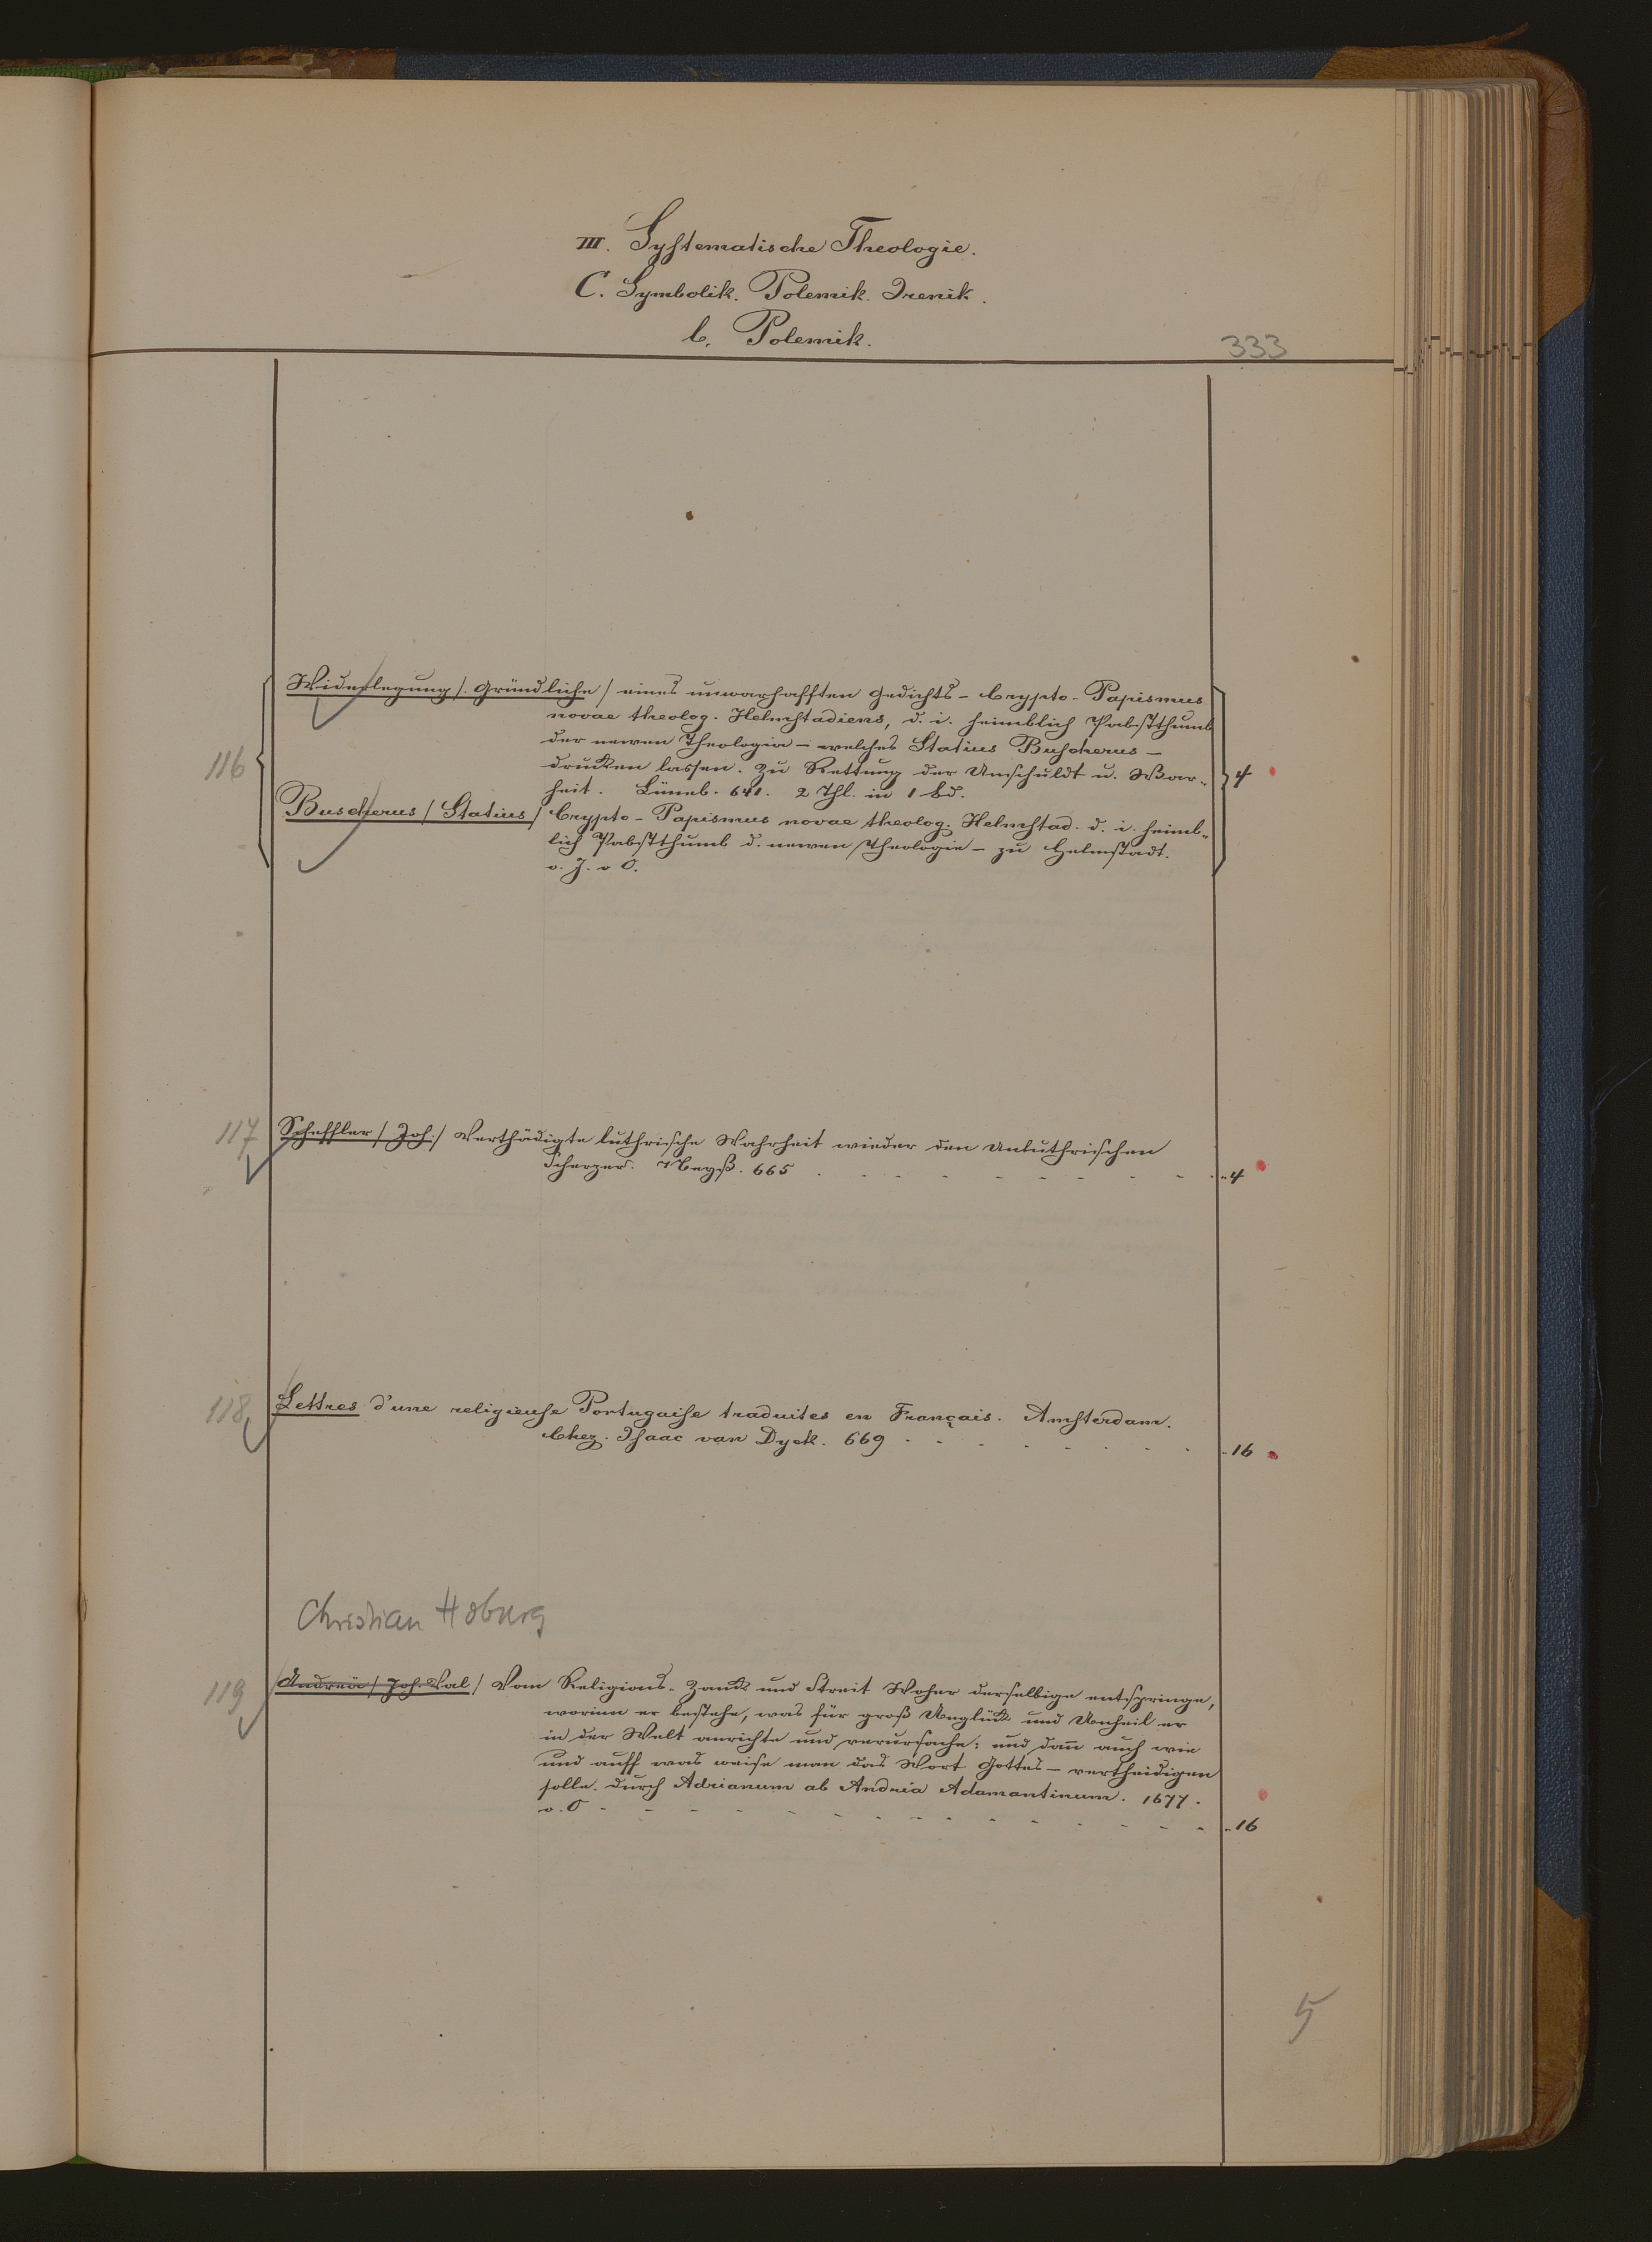 III. Systematische Theologie.
C. Symbolik. Polemik. Irenik.
b. Polemik.
333
116
Widerlegung /. Gründliche / eines unwarhafften Gedichts – Crypto-Papismus
novae theolog. Helmstadiens, d. i. heimblich Pabstthumb
der newen Theologia – welches Statius Buscherus –
drucken lassen. Zu Rettung der Unschuldt u. War-
heit. Lüneb. 641. 2 Thl. in 1 Bd.
4
Buscherus / Statius / Crypto-Papismus novae theolog. Helmstad. d. i. heimb-
lich Pabstthumb d. newen Theologie – zu Helmstadt.
o. J. o O.
117 Scheffler / Joh: / Verthädigte luthrische Wahrheit wieder den Unluthrischen
Scherzer. 665 „4
118 Lettres d'une religieuse Portugaise traduites en Français. Amsterdam.
Chez. Isaac van Dyck. 669 „16
Christian Hoburg
119 Andreä / Joh. Val / Vom Religions-Zank und Streit Woher derselbige entspringe,
worinn er bestehe, was für groß Unglück und Unheil er
in der Welt anrichte und verursache: und dan̄ auch wie
und auff was weise man das Wort Gottes – vertheidigen
solle. Durch Adrianum ab Andria Adamantinum. 1677.
o. O „16
5